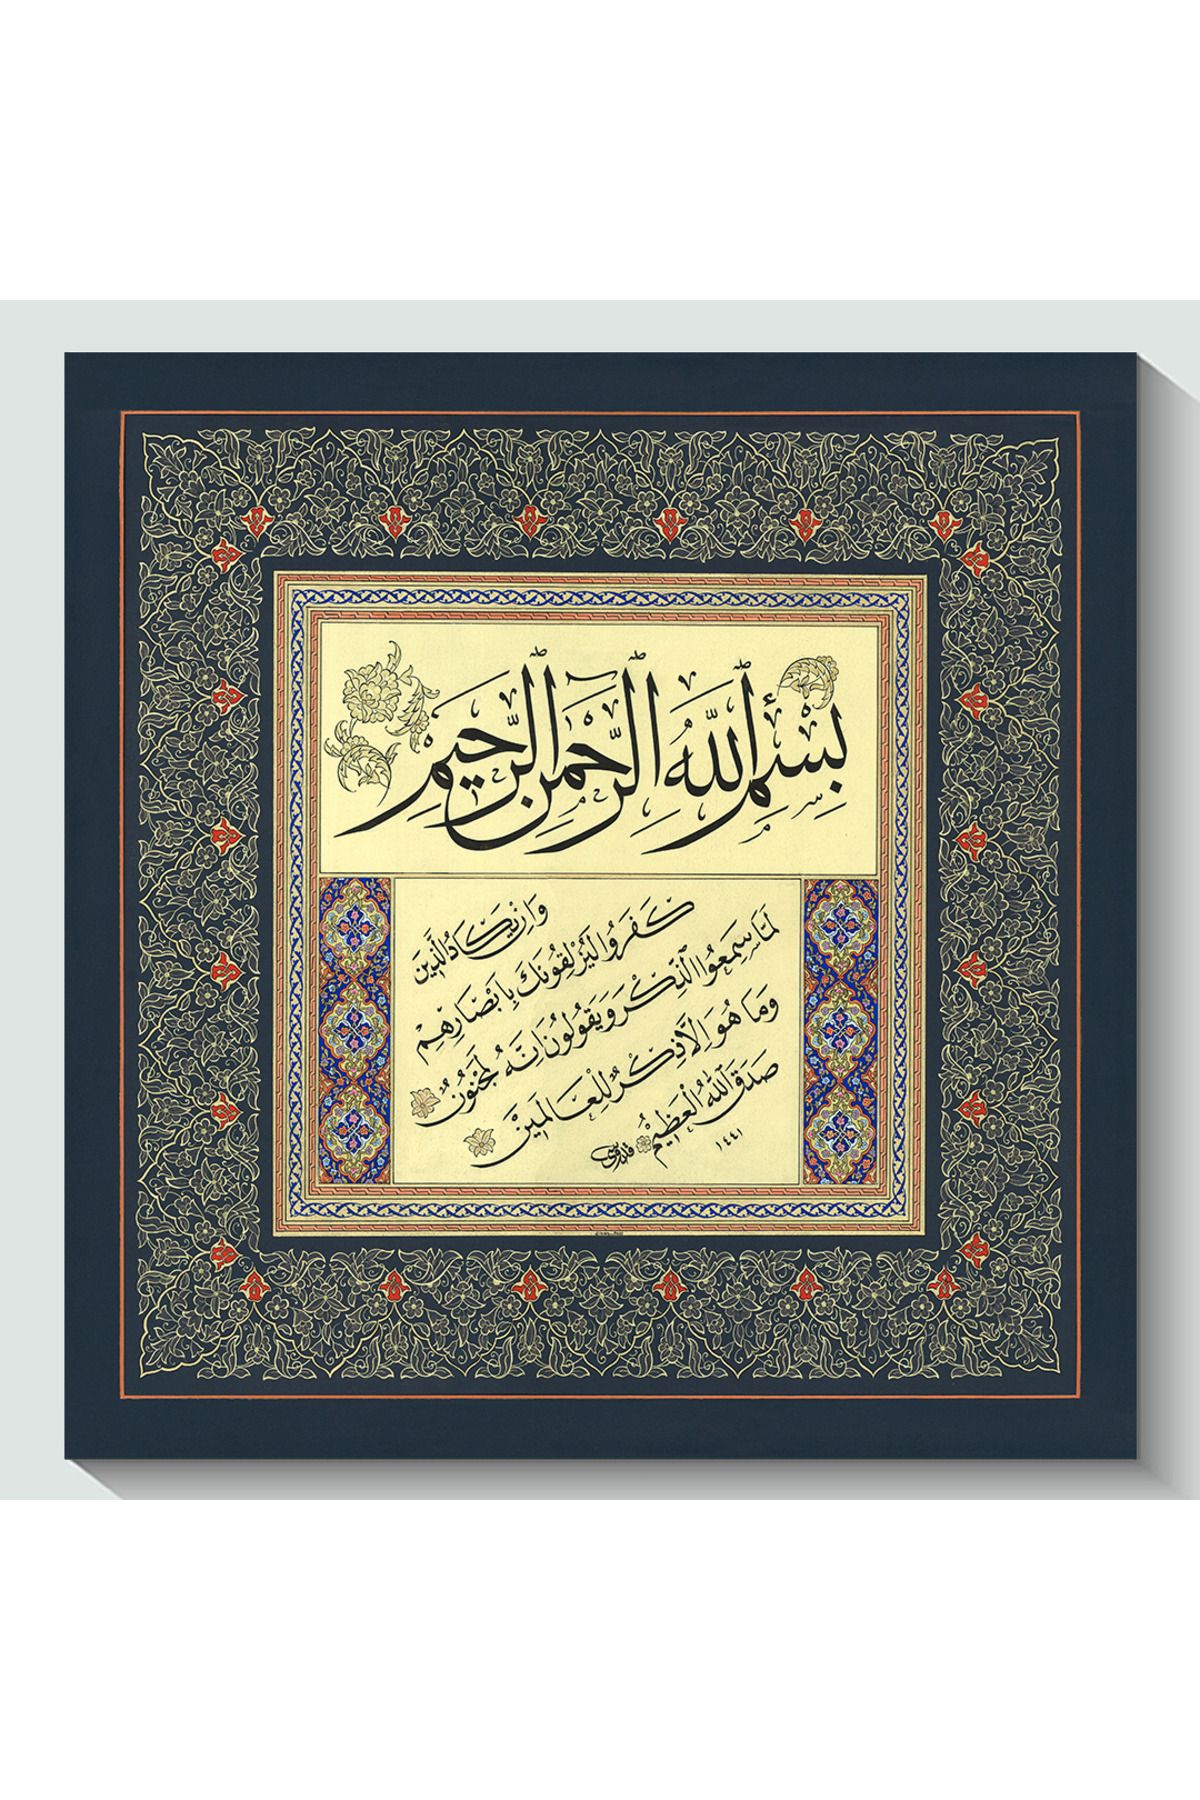 بِسْمِ اللّٰهِ الرَّحْمٰنِ الرَّحِيمِ
وَاِنْ يَكَادُ الَّذِينَ
كَفَرُوا لَيُزْلِقُونَكَ بِاَبْصَارِهِمْ
لَمَّا سَمِعُوا الذِّكْرَ وَيَقُولُونَ اِنَّهُ لَمَجْنُونٌ
وَمَا هُوَ اِلَّا ذِكْرٌ لِلْعَالَمِينَ
صَدَقَ اللّٰهُ الْعَظِيمُ
١٤٤١